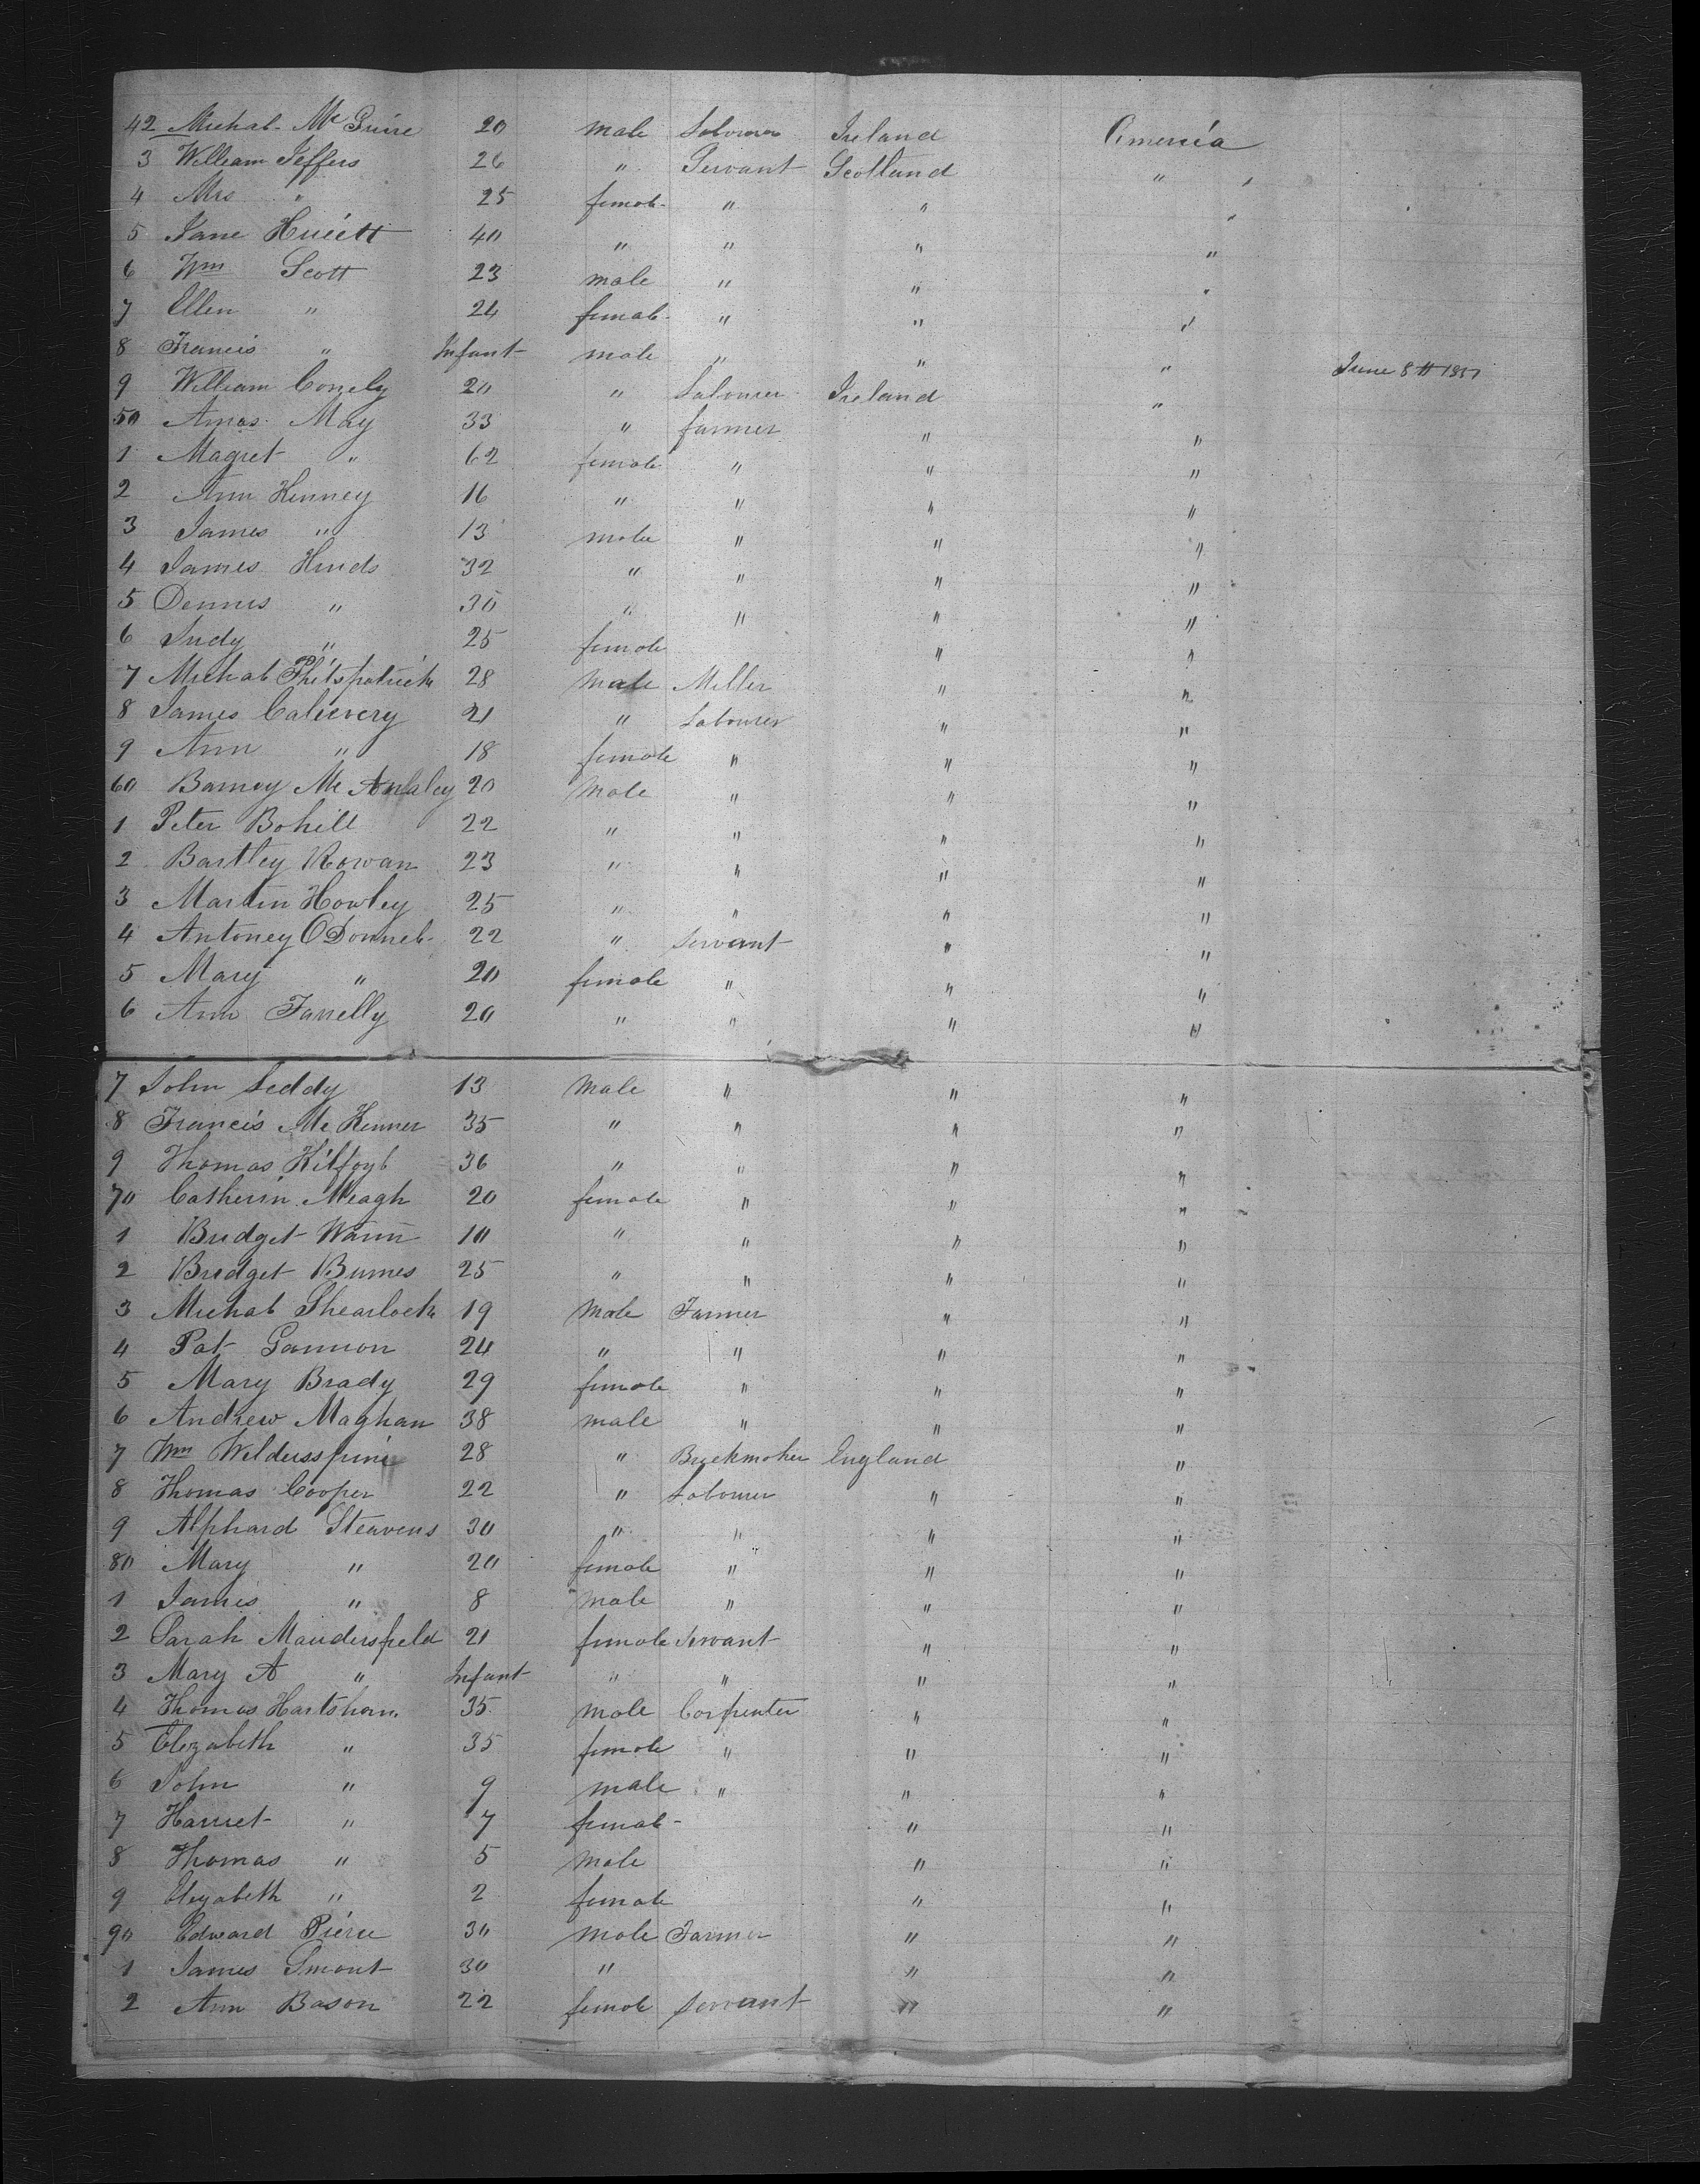 42 Michal Mc Guire 20 male Labourer Ireland America
3 William Jeffers 26 " Servant Scotland "
4 Mrs " 25 female " " "
5 Jane Huiett 40 " " " "
6 Wm Scott 23 male " " "
7 Ellen " 24 female " " "
8 Francis " Infant male " " " June 8th 1851
9 William Conely 20 " Labourer Ireland "
50 Amos May 33 " farmer " "
1 Magret " 62 female " " "
2 Ann Henney 16 " " " "
3 James " 13 male " " "
4 James Hinds 32 " " " "
5 Dennis " 30 " " " "
6 Judy " 25 female " "
7 Michal Phitspatrick 28 Male Miller " "
8 James Calievery 21 " Labourer " "
9 Ann " 18 female " " "
60 Barney Mc 20 Male " " "
1 Peter Bohill 22 " " " "
2 Bartley Rowan 23 " " " "
3 Martin Howley 25 " " " "
4 Antoney O Donnel 22 " servant " "
5 Mary " 20 female " " "
6 Ann Farrelly 20 " " " "
7 John Leddy 13 Male " " "
8 Francis Mc Kenner 35 " " " "
9 Thomas Kilfoyl 36 " " " "
70 Catherin Meagh 20 female " " "
1 Bridget 10 " " " "
2 Bridget Burnes 25 " " " "
3 Michal Shearlock 19 Male Farmer " "
4 Pat Gannon 24 " " " "
5 Mary Brady 29 female " " "
6 Andrew Maghan 38 male " " "
7 Wm Wilderspine 28 " Brickmaker England "
8 Thomas Cooper 22 " Labourer " "
9 Alphard Steavens 30 " " " "
80 Mary " 20 female " " "
1 James " 8 Male " " "
2 Sarah Maudersfield 21 female servant " "
3 Mary A " Infant " " " "
4 Thomas Hartshorn 35 male Carpenter " "
5 Elizabeth " 35 female " " "
6 John " 9 male " " "
7 Harriet " 7 female " "
8 Thomas " 5 Male " "
9 Elizabeth " 2 female " "
90 Edward Pierce 30 Male Farmer " "
1 James Smout 30 " " "
2 Ann Bason 22 female servant " "